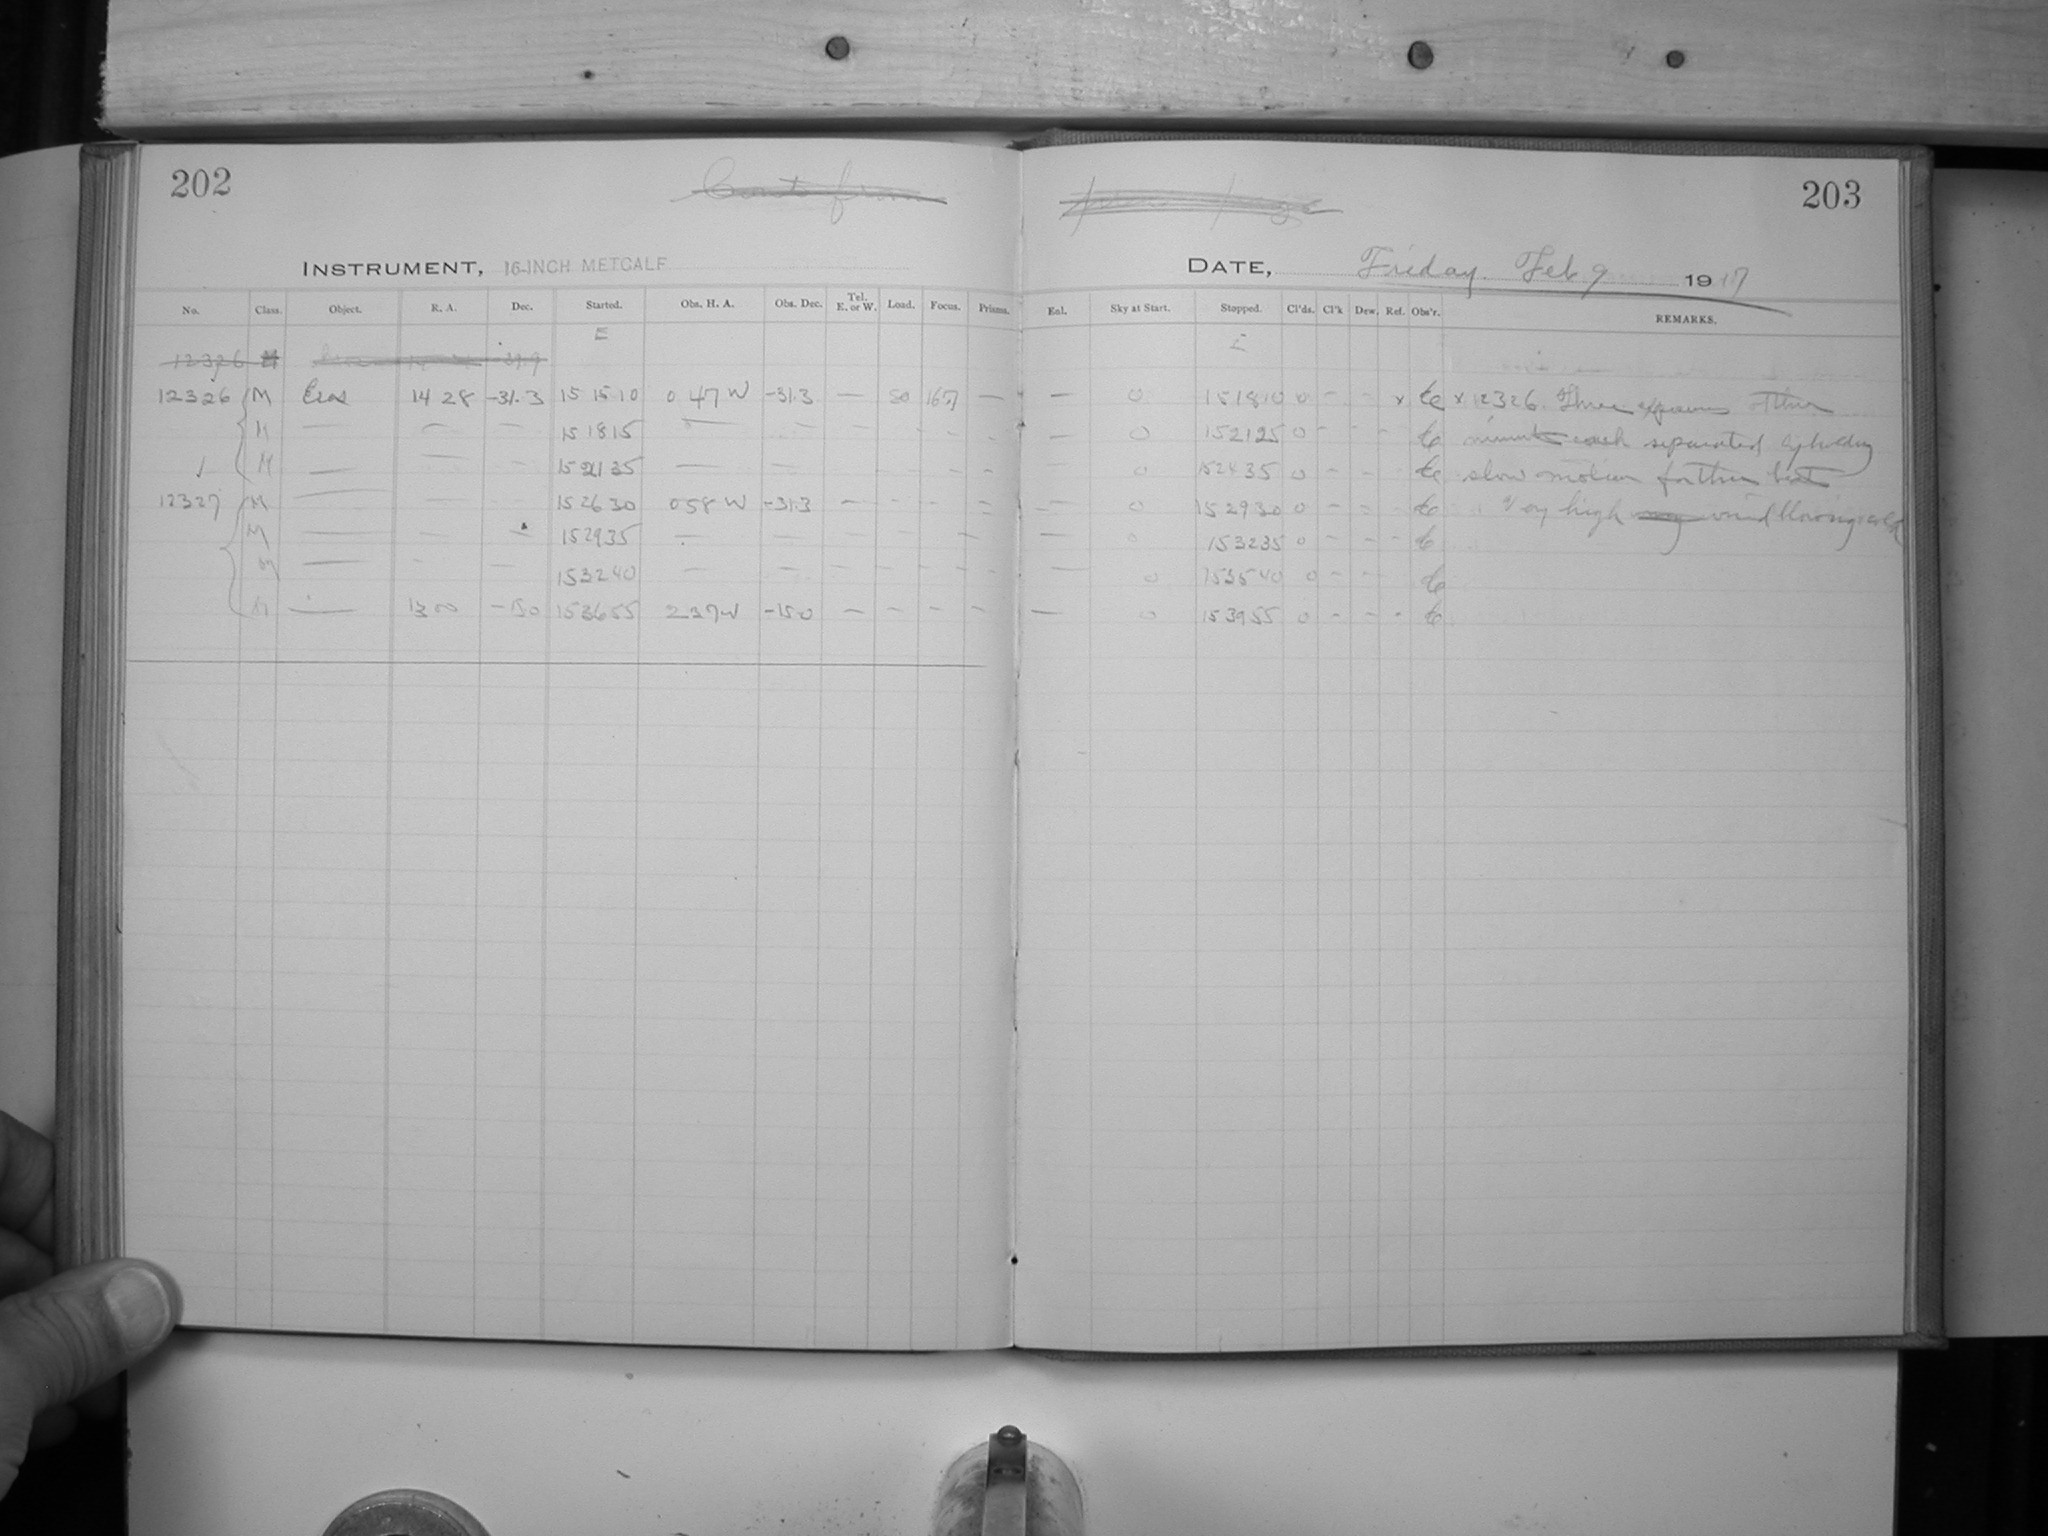 202
203
INSTRUMENT, 16-INCH METCALF
DATE, Friday. Feb 9 1917
No. Class. Object. R. A. Dec. Started. Obs. H. A. Obs. Dec. Tel. E. or W. Load. Focus. Prisms. Enl. Sky at Start. Stopped. Cl'ds. Cl'k Dew. Ref. Obs'r. REMARKS.
E E
12326 M
12326 M Eros 14 28 -31.3 15 15 10 0 47 W -31.3 — 50 167 — — 0 15 18 10 0 - - x x 12326. Three exposures of three
M — — — 15 18 15 — — — - - - — 0 15 21 25 0 - - - minutes each separated by holding
M — — — 15 21 35 — — — - - - — 0 15 24 35 0 - - - slow motion for three
12327 M — — — 15 26 30 0 58 W -31.3 — - - - — 0 15 29 30 0 - - - Very high wind blowing
M — — 15 29 35 — — — - - — — 0 15 32 35 0 - - -
M — - — 15 32 40 — — — - - - — 0 15 35 40 0 - - -
M — 13 00 -15.0 15 36 55 2 37 W -15.0 — - - - — 0 15 39 55 0 - - -